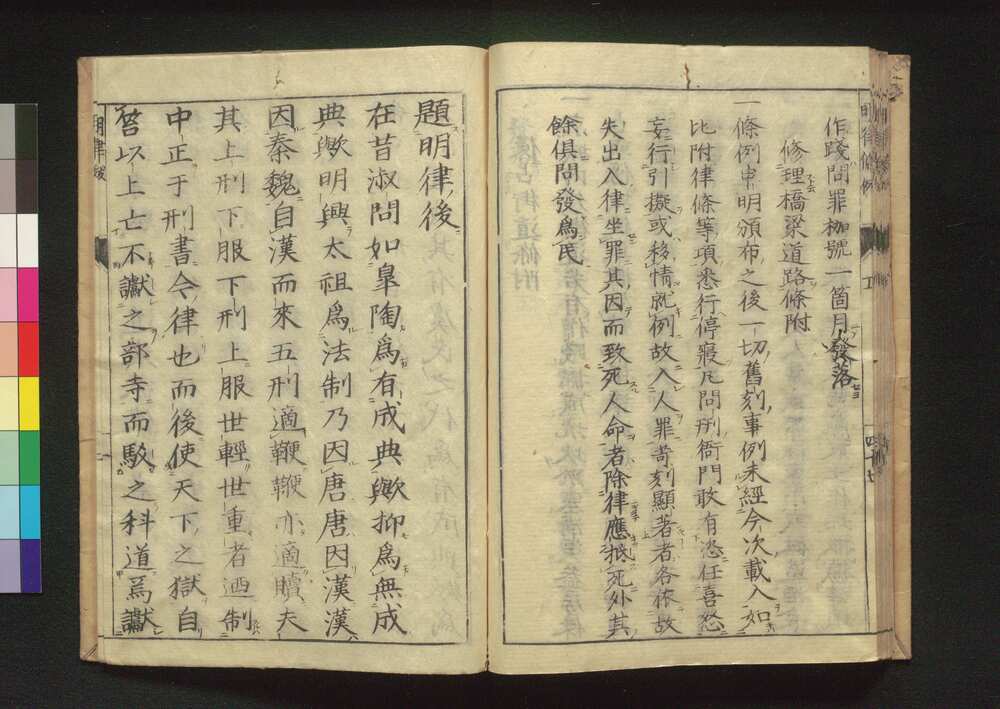 作踐問罪枷號一箇月發落
修理橋梁道路條附
一條例申明頒布之後一切舊刻事例未經今次載入如
比附律條等項悉行停寢凡問刑衙門敢有恣任喜怒
妄行引擬或移情就例故入人罪苛刻顯著者各依故
失出入律坐罪其因而致死人命者除律應抵死外其
餘俱問發爲民
明律條例
工
四十七
題明律後
在昔淑問如皐陶爲有成典歟抑爲無成
典歟明興太祖爲法制乃因唐唐因漢漢
因秦魏自漢而來五刑適鞭鞭亦適贖夫
其上刑下服下刑上服世輕世重者迺制
中正于刑書今律也而後使天下之獄自
笞以上亡不讞之部寺而駁之科道焉讞
明律跋